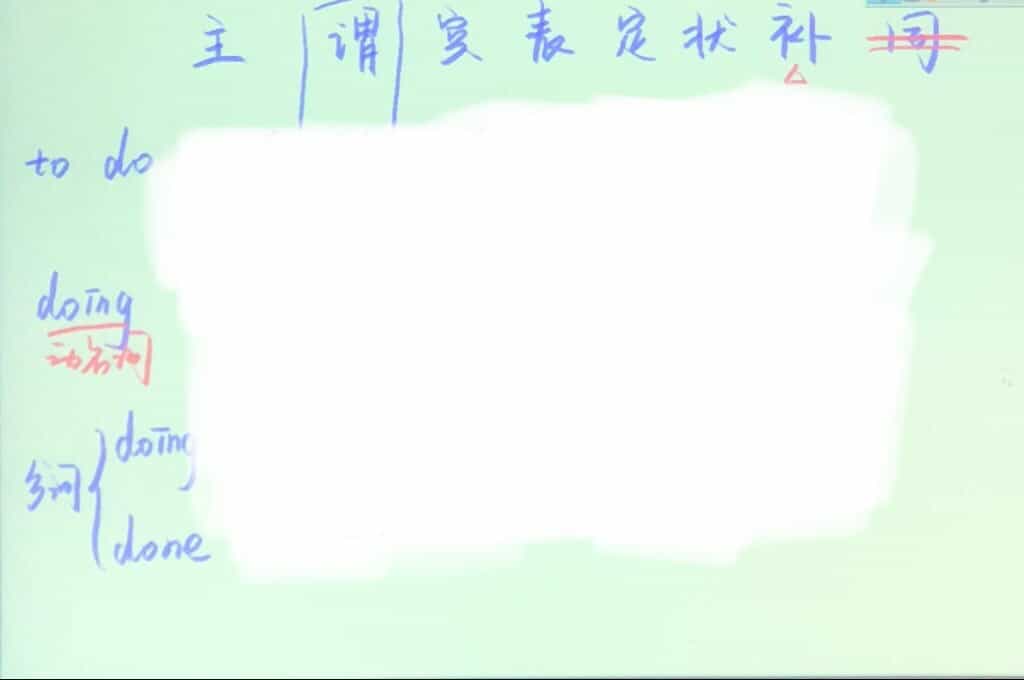 主 谓 宾 表 定 状 补 同
to do
doing
动名词
分词 { doing
done